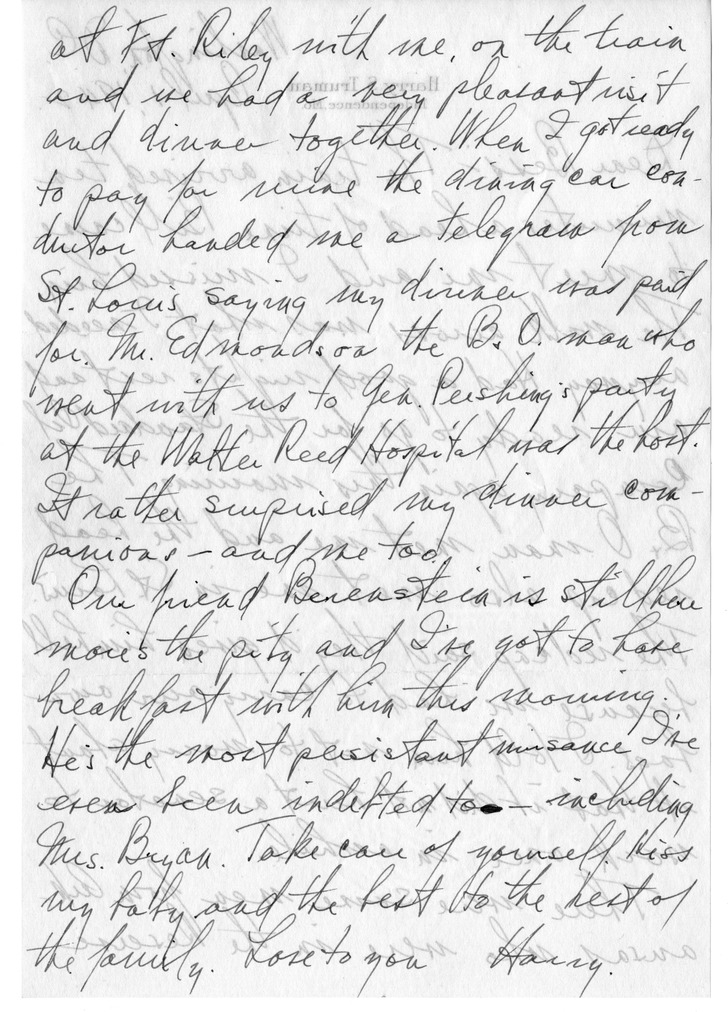 at Ft. Riley with me, on the train
and we had a very pleasant visit
and dinner together. When I got ready
to pay for mine the dining car con-
ductor handed me a telegram from
St. Louis saying my dinner was paid
for. Mr. Edmondson the B. O. man who
went with us to Gen. Pershing's party
at the Walter Reed Hospital was the host.
It rather surprised my dinner com-
panions - and me too.
Our friend Berenstein is still here
more's the pity and I've got to have
breakfast with him this morning.
He's the most persistant nuisance I've
ever been indebted to - including
Mrs. Bryan. Take care of yourself. Kiss
my baby and the best to the rest of
the family. Love to you Harry.
Harry S. Truman
Independence, Mo.